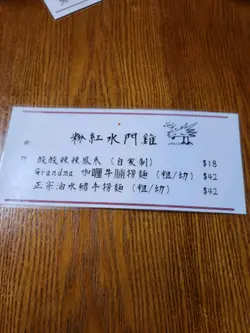 粉紅水門雞
新
酸酸辣辣鳳爪 (自家制) $18
附 Grandma 咖喱牛腩撈麵 (粗/幼) $42
正宗油水豬手撈麵 (粗/幼) $42